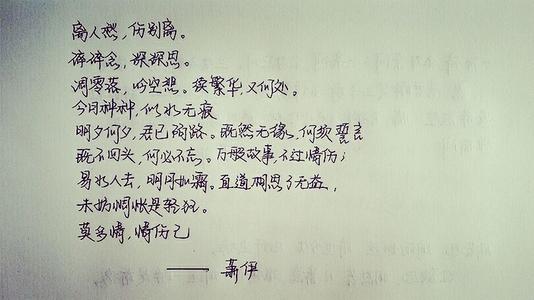 离人愁，伤别离。
碎碎念，深深思。
凋零落，吟空想。续繁华又何处。
今日种种，似水无痕
明夕何夕，君已陌路。既然无缘，何须誓言
既不回头，何必不忘。万般故事，不过情伤；
易水人去，明月如霜。直道相思了无益，
未妨惆怅是轻狂。
莫多情，情伤己
—— 萧伊